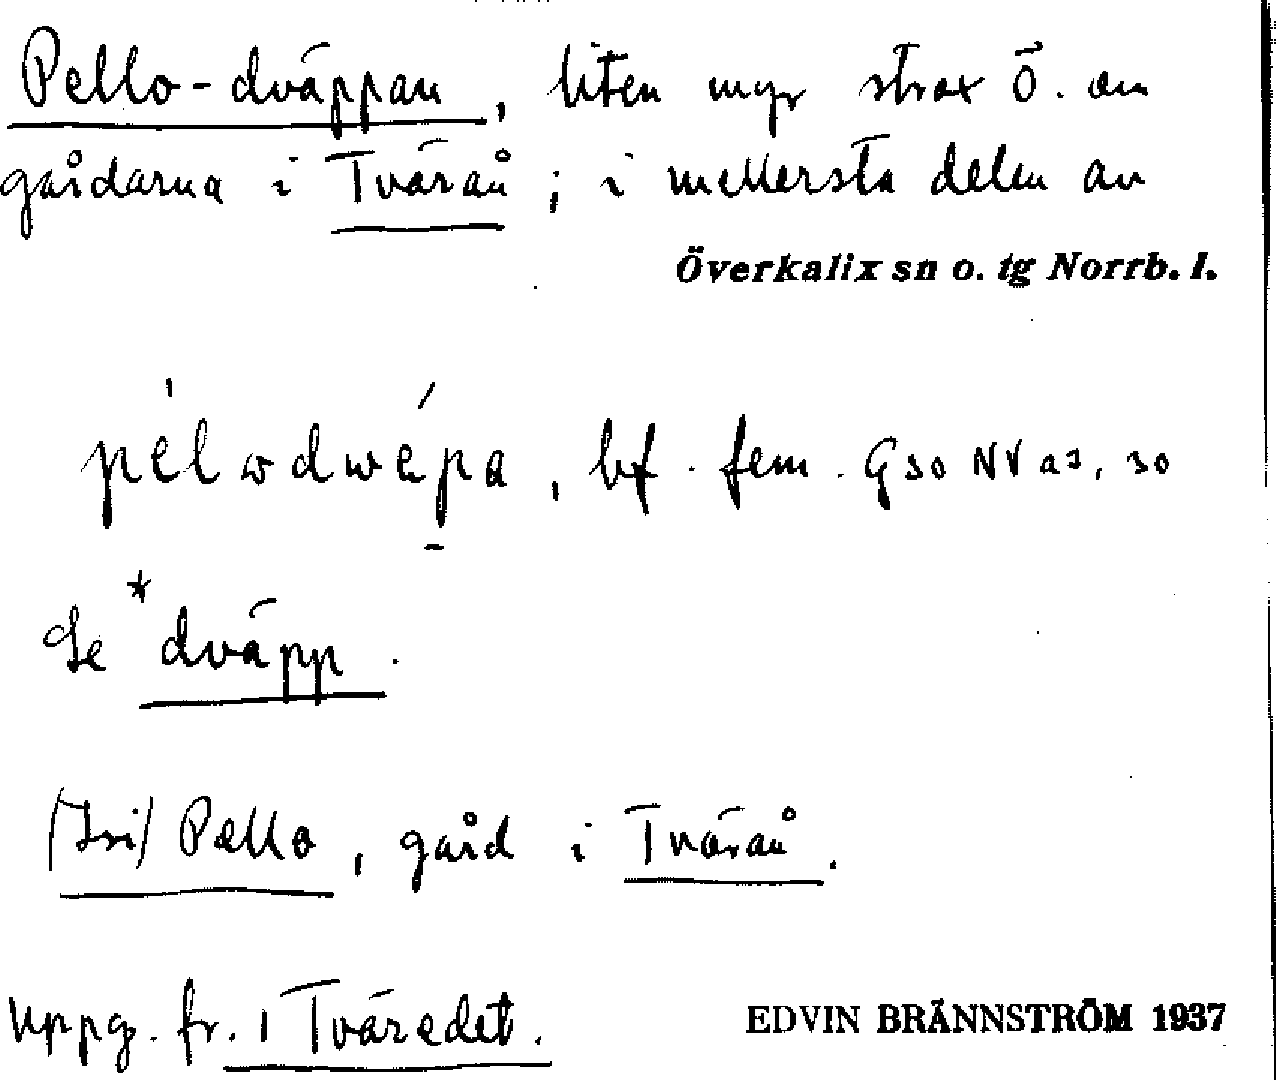 Pello-dväppan, liten myr strax Ö. om
gårdarna i Tväråu; i mellersta delen av
Överkalix sn o. tg Norrb. l.
bf. fem.
Se *dväpp.
(Isi) Pello, gård i Tväråu.
uppg. fr. i Tväredet.
EDVIN BRÄNNSTRÖM 1937